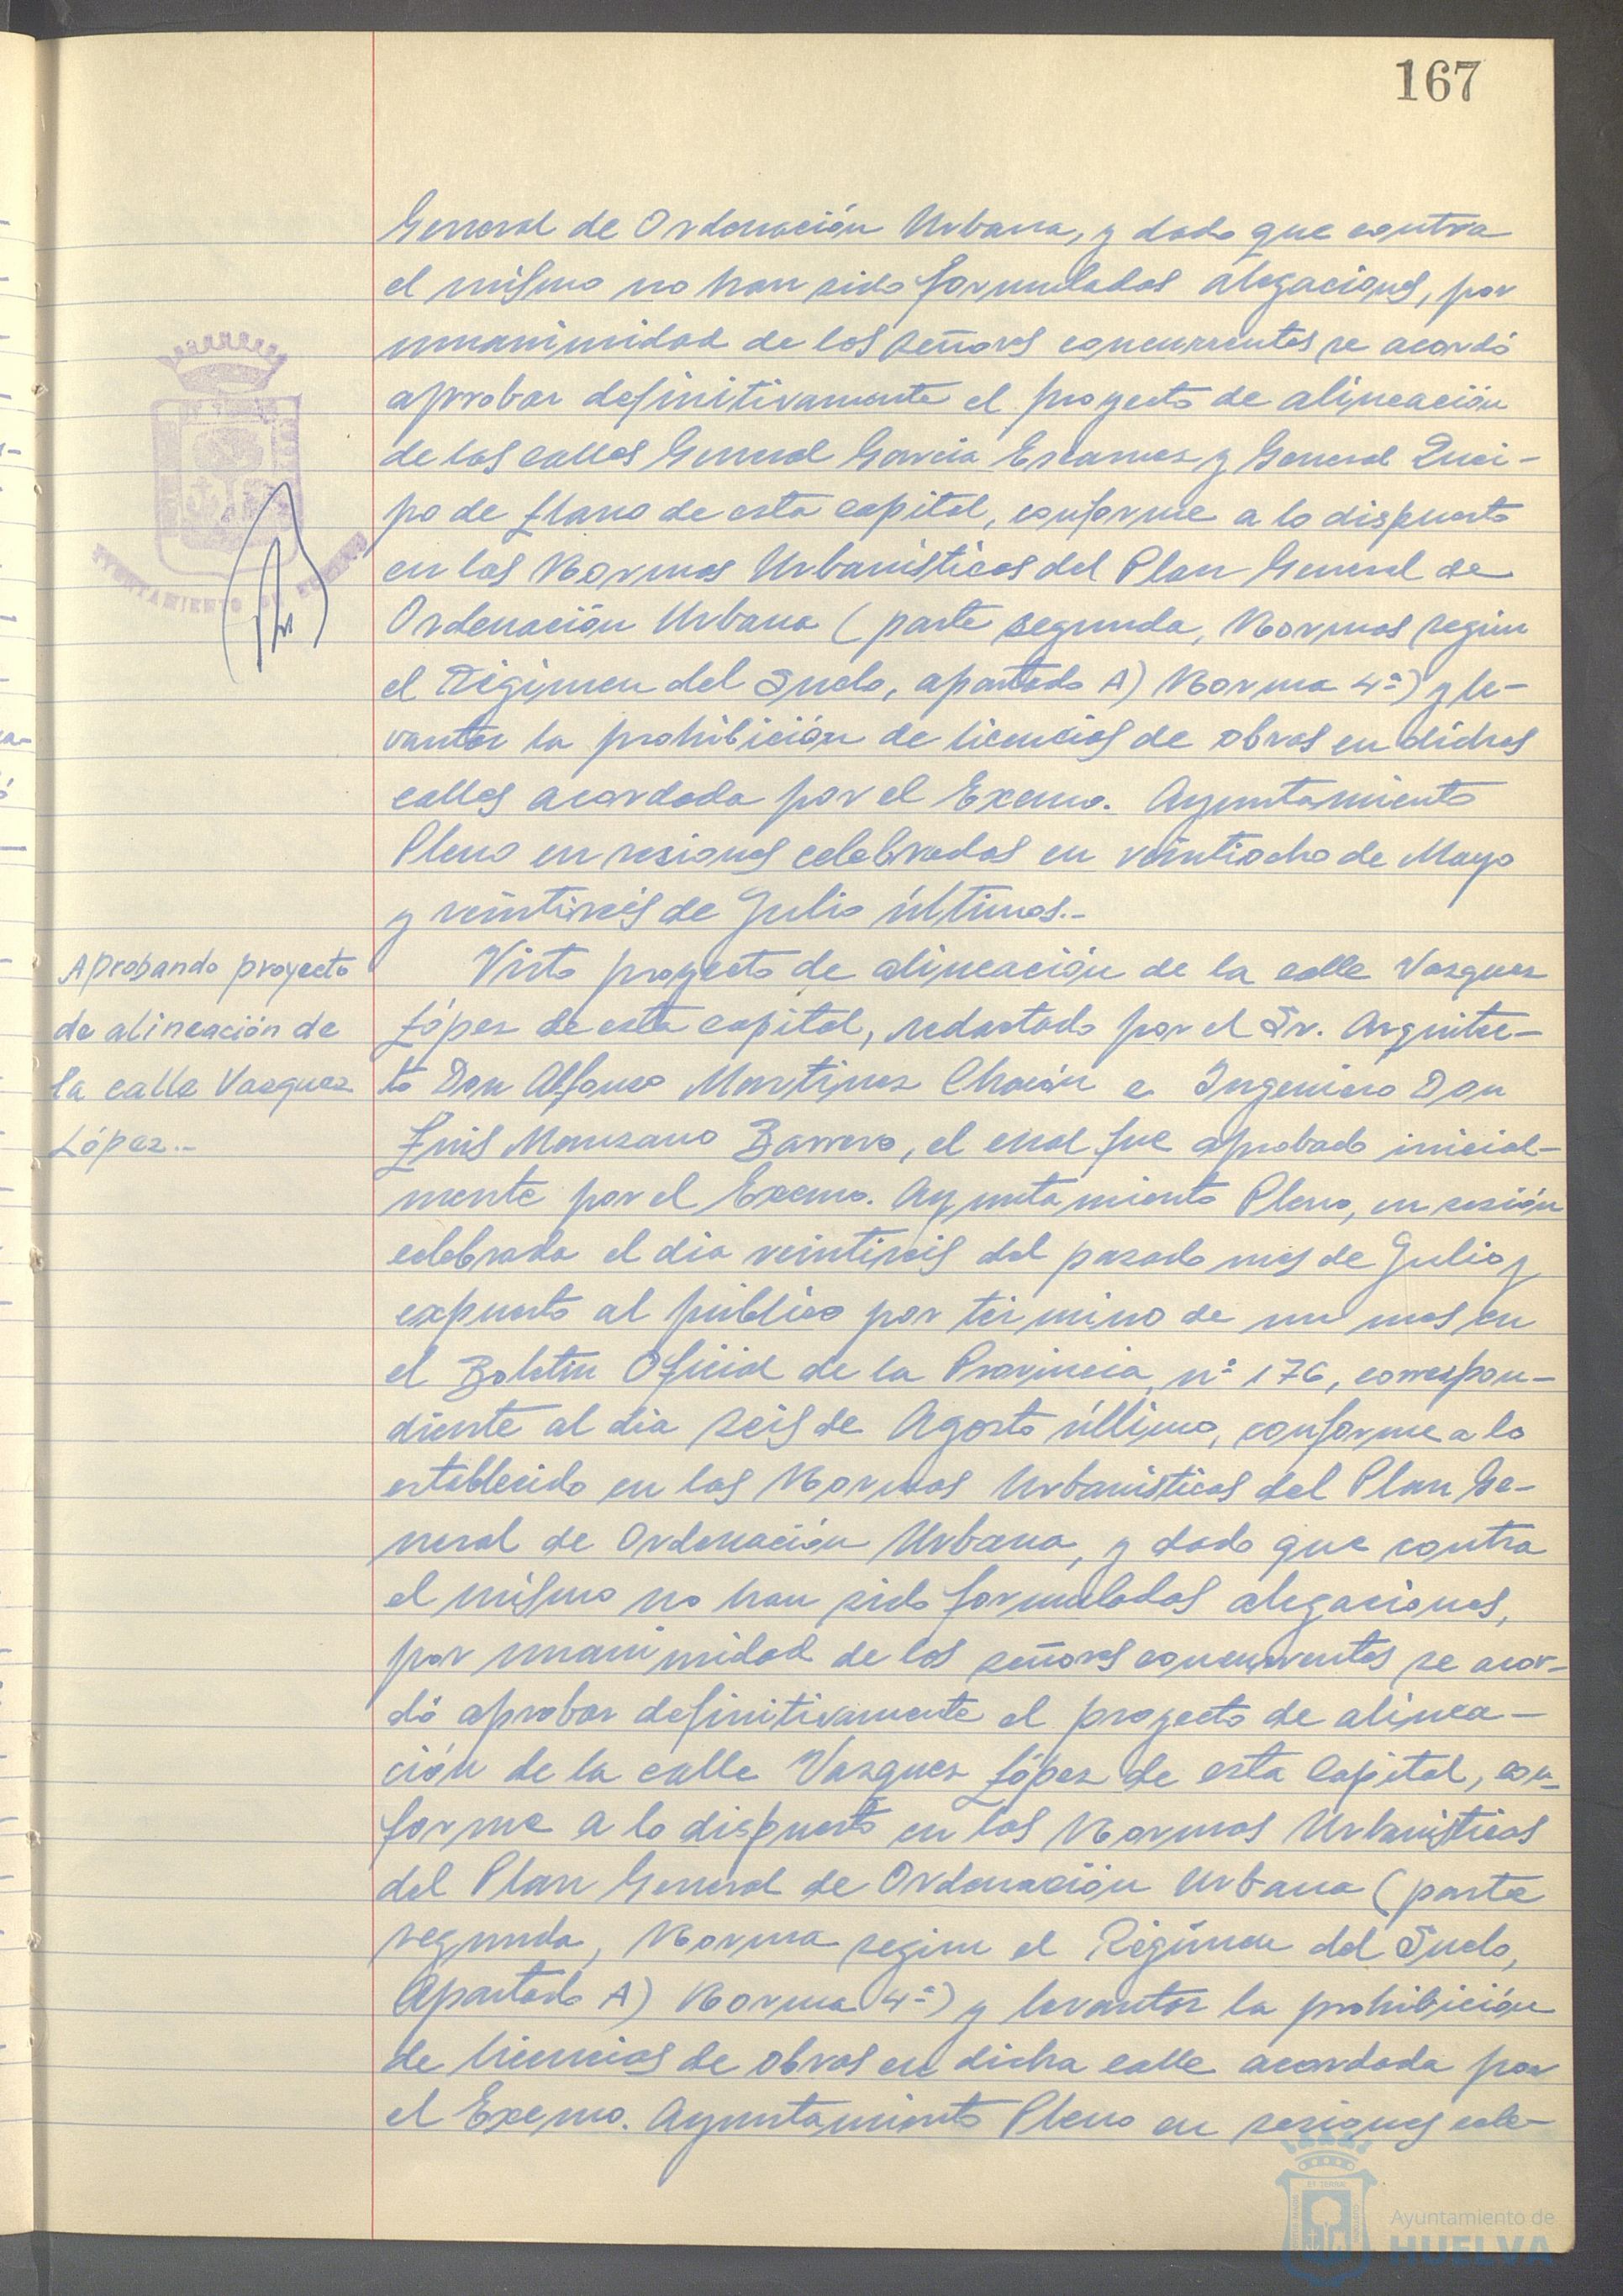 167
General de Ordenación Urbana, y dado que contra
el mismo no han sido formuladas alegaciones, por
unanimidad de los señores concurrentes se acordó
aprobar definitivamente el proyecto de alineación
de las calles General Garcia Escamez y General Quei-
po de Llano de esta capital, conforme a lo dispuesto
en las Normas Urbanisticas del Plan General de
Ordenación Urbana (parte segunda, Normas segun
el Régimen del Suelo, apartado A) Norma 4ª) y le-
vantar la prohibición de licencias de obras en dichas
calles acordada por el Excmo. Ayuntamiento
Pleno en sesiones celebradas en veintiocho de Mayo
y veintiseis de Julio últimos.-
Aprobando proyecto
de alineación de
la calle Vazquez
López.-
Visto proyecto de alineación de la calle Vazquez
López de esta capital, redactado por el Sr. Arquitec-
to Don Alfonso Martinez Chacón e Ingeniero Don
Luis Manzano Barrero, el cual fue aprobado inicial-
mente por el Excmo. Ayuntamiento Pleno, en sesión
celebrada el dia veintiseis del pasado mes de Julio y
expuesto al público por término de un mes en
el Boletin Oficial de la Provincia nº 176, correspon-
diente al dia seis de Agosto último, conforme a lo
establecido en las Normas Urbanisticas del Plan Ge-
neral de Ordenación Urbana, y dado que contra
el mismo no han sido formuladas alegaciones,
por unanimidad de los señores concurrentes se acor-
dó aprobar definitivamente el proyecto de alinea-
ción de la calle Vazquez López de esta Capital, con-
forme a lo dispuesto en las Normas Urbanisticas
del Plan General de Ordenación Urbana (parte
segunda, Norma segun el Régimen del Suelo,
Apartado A) Norma 4ª) y levantar la prohibición
de licencias de obras en dicha calle acordada por
el Excmo. Ayuntamiento Pleno en sesiones cele-
AYUNTAMIENTO DE HUELVA
Ayuntamiento de
HUELVA